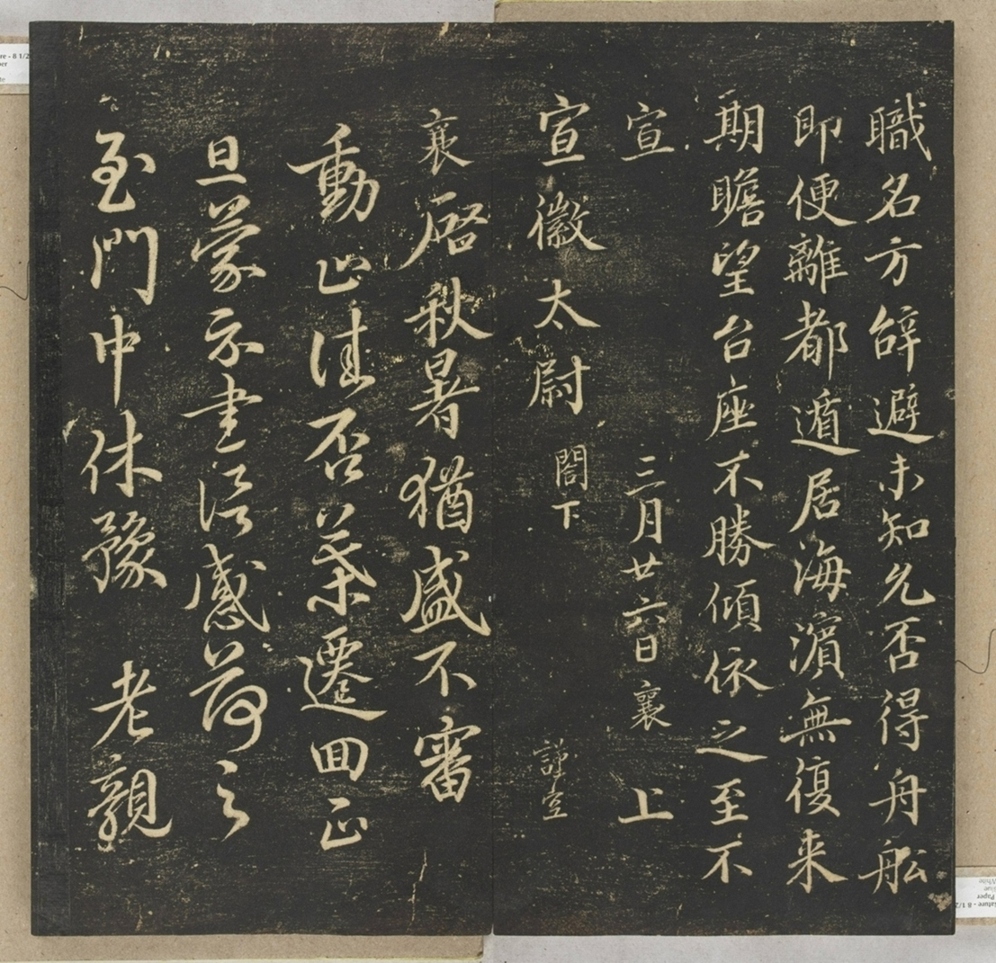 職名方辝避未知允否得舟舩
即便離都遁居海濱無復来
期瞻望台座不勝傾依之至不
宣 三月廿六日襄 上
宣徽太尉 閤下 謹空
襄啓秋暑猶盛不審
動止佳否葉遷回正
旦蒙示書感荷之
至門中休豫 老親